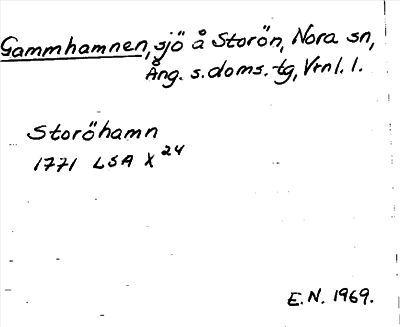 Gammhamnen, sjö å Storön, Nora sn,
Ång. s. doms. tg, Vrnl. l.
Storöhamn
1771 LSA X 24
E.N. 1969.